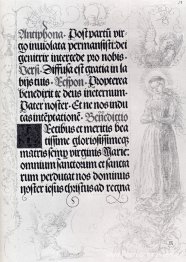 Antiphona. Post partū vir
go inviolata permansisti: dei
genitrix intercede pro nobis.
Versi. Diffusa est gratia in la
bijs tuis. Respon. Propterea
benedixit te deus in eternum.
Pater noster. Et ne nos indu
cas in teptationē. Benedictio
Precibus et meritis bea
tissime gloriosissimeqꝫ
matris semp virginis Marie:
omnium sanctorum et sancta
rum perducat nos dominus
noster iesus christus ad regna